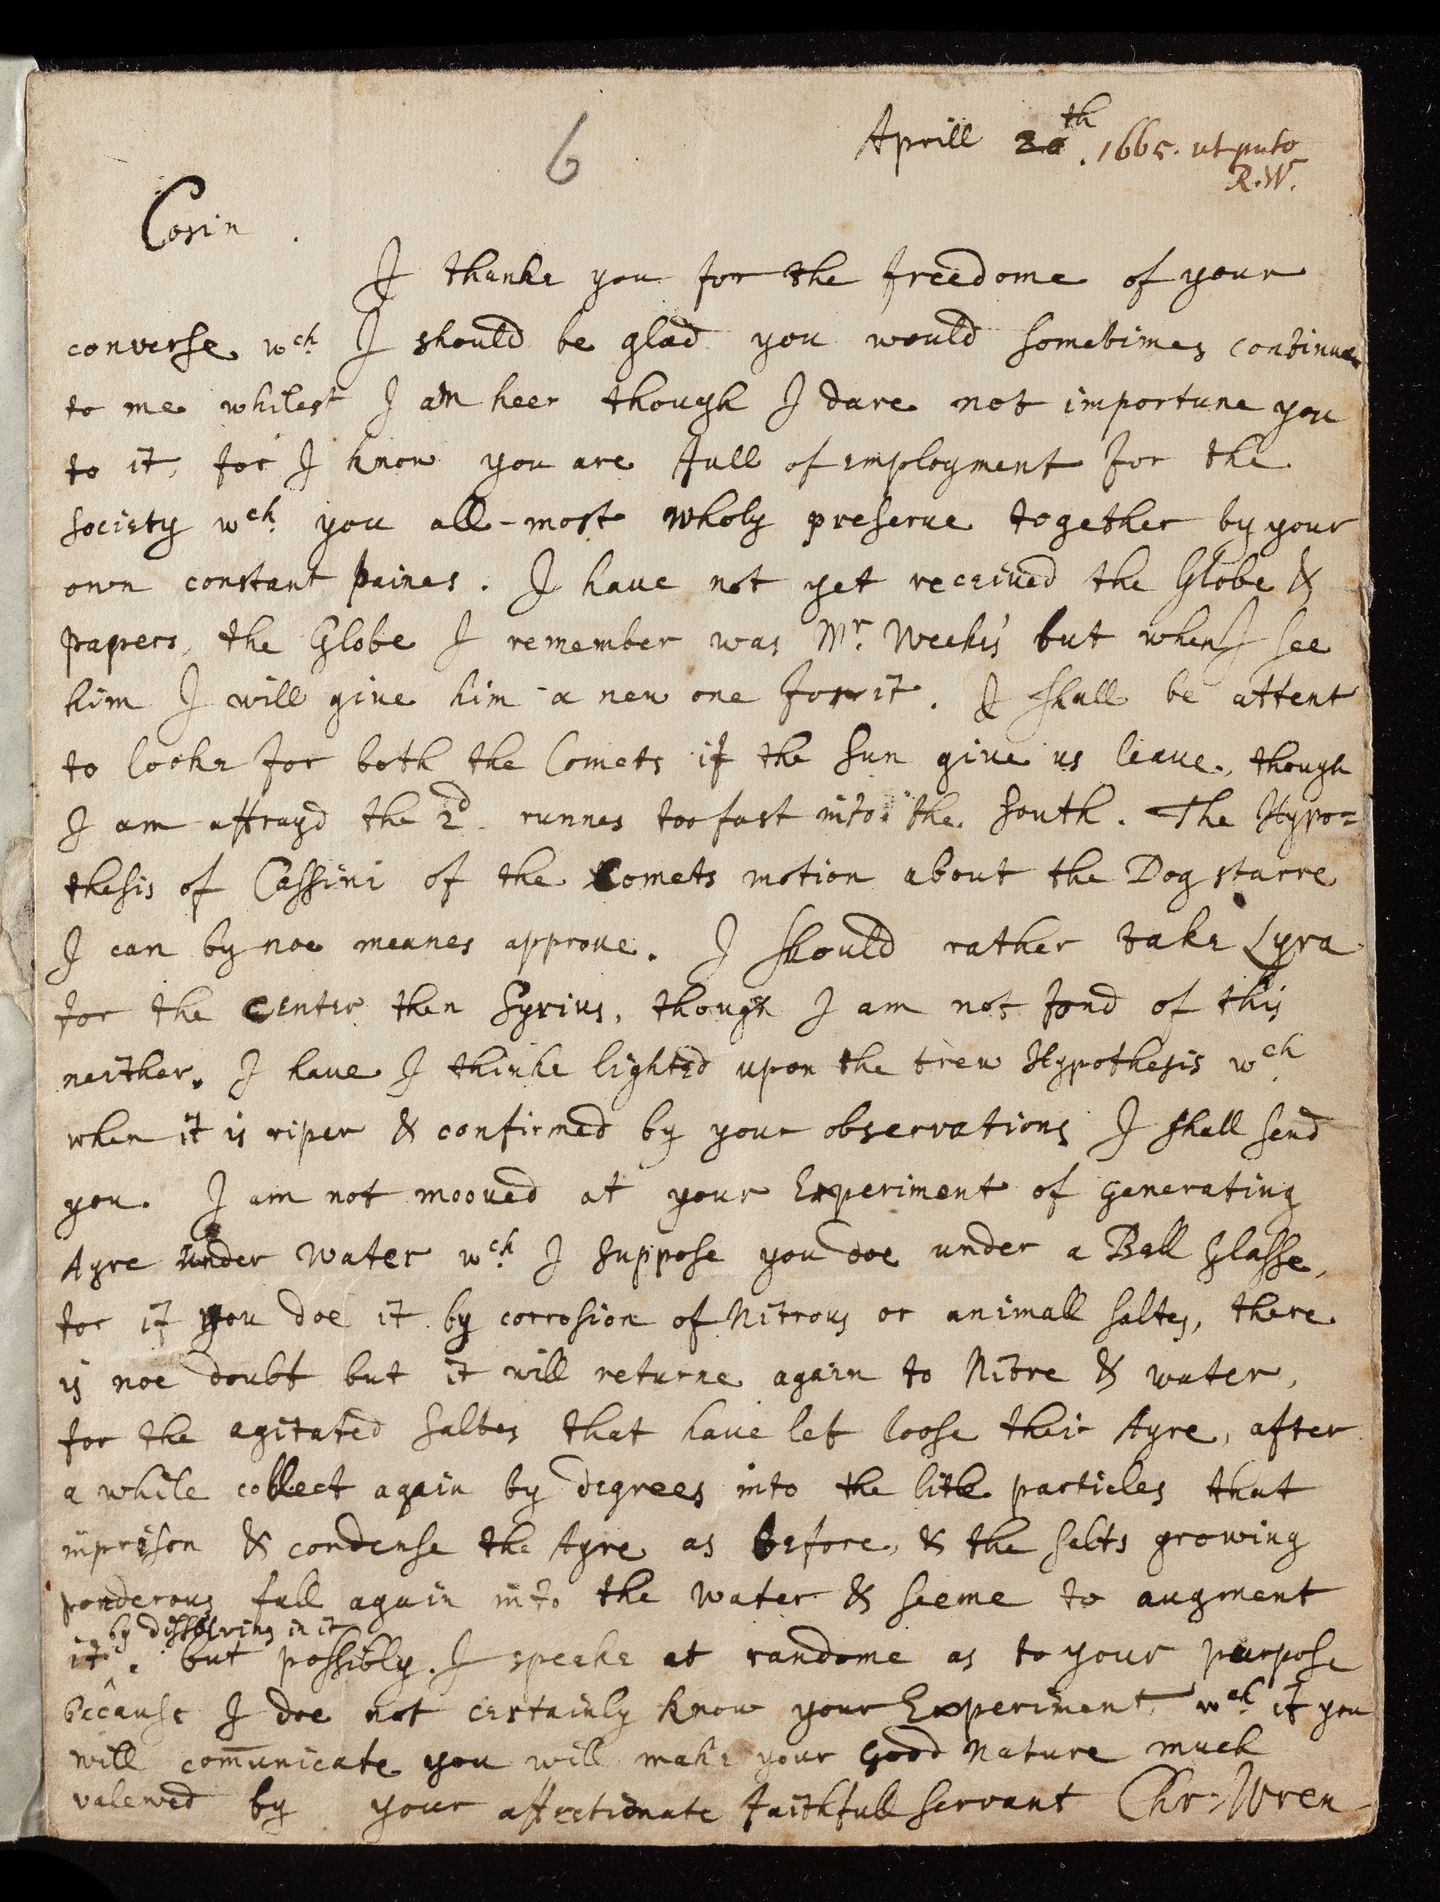 6
Aprill 20th. 1665. ut puto
R.W.
Cosin.
I thanke you for the freedome of your
converse wch. I should be glad you would sometimes continue
to me whilest I am heer though I dare not importune you
to it, for I know you are full of employment for the
Society wch. you all-most wholy preserue together by your
own constant paines. I haue not yet receiued the Globe &
papers, the Globe I remember was Mr. Weekes' but when I see
him I will giue him a new one for it. I shall be attent
to looke for both the Comets if the Sun giue us leaue, though
I am affrayd the 2d. runnes too fast into the South. The Hypo=
thesis of Cassini of the Comets motion about the Dog starre
I can by noe meanes approue. I should rather take Lyra
for the center then Syrius, though I am not fond of this
neither. I haue I thinke lighted upon the trew Hypothesis wch
when it is riper & confirmed by your observations I shall send
you. I am not mooued at your Experiment of generating
Ayre under Water wch. I suppose you doe under a Bell Glasse,
for if you doe it by corrosion of Nitrous or animall saltes, there
is noe doubt but it will returne again to Nitre & water,
for the agitated saltes that haue let loose their Ayre, after
a while collect again by degrees into the litle particles that
imprison & condense the Ayre as before, & the salts growing
ponderous fall again into the water & seeme to augment
by dissolving in it
it. but possibly I speake at randome as to your purpose
because I doe not certainly know your Experiment, wch. if you
will com̅unicate you will make your good nature much
valewed by your affectionate faithfull servant Chr: Wren